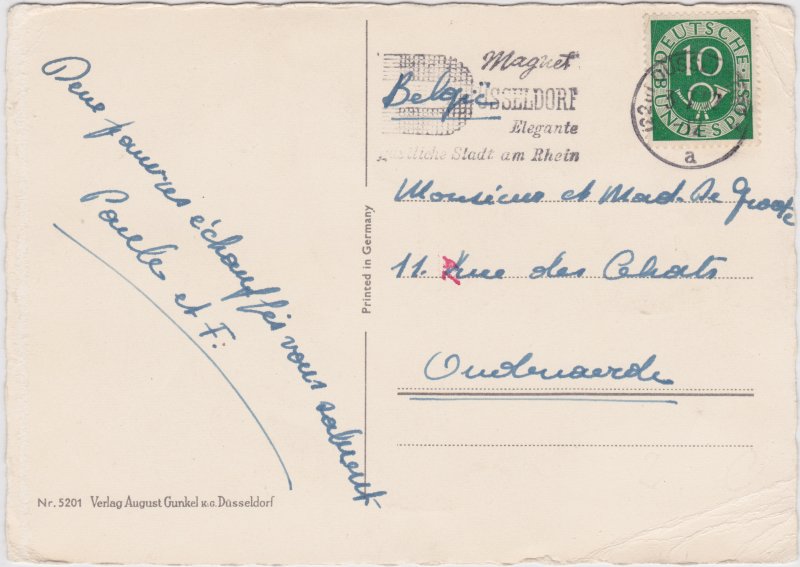 Deux pauvres échauffés vous saluent
Paule et F.
Nr. 5201 Verlag August Gunkel K.G. Düsseldorf
Printed in Germany
Magnet
DÜSSELDORF
Elegante
gastliche Stadt am Rhein
DEUTSCHE
10
BUNDESPOST
a
Belgie
Monsieur et Mad. De Groote
11. rue des Chats
Oudenaerde